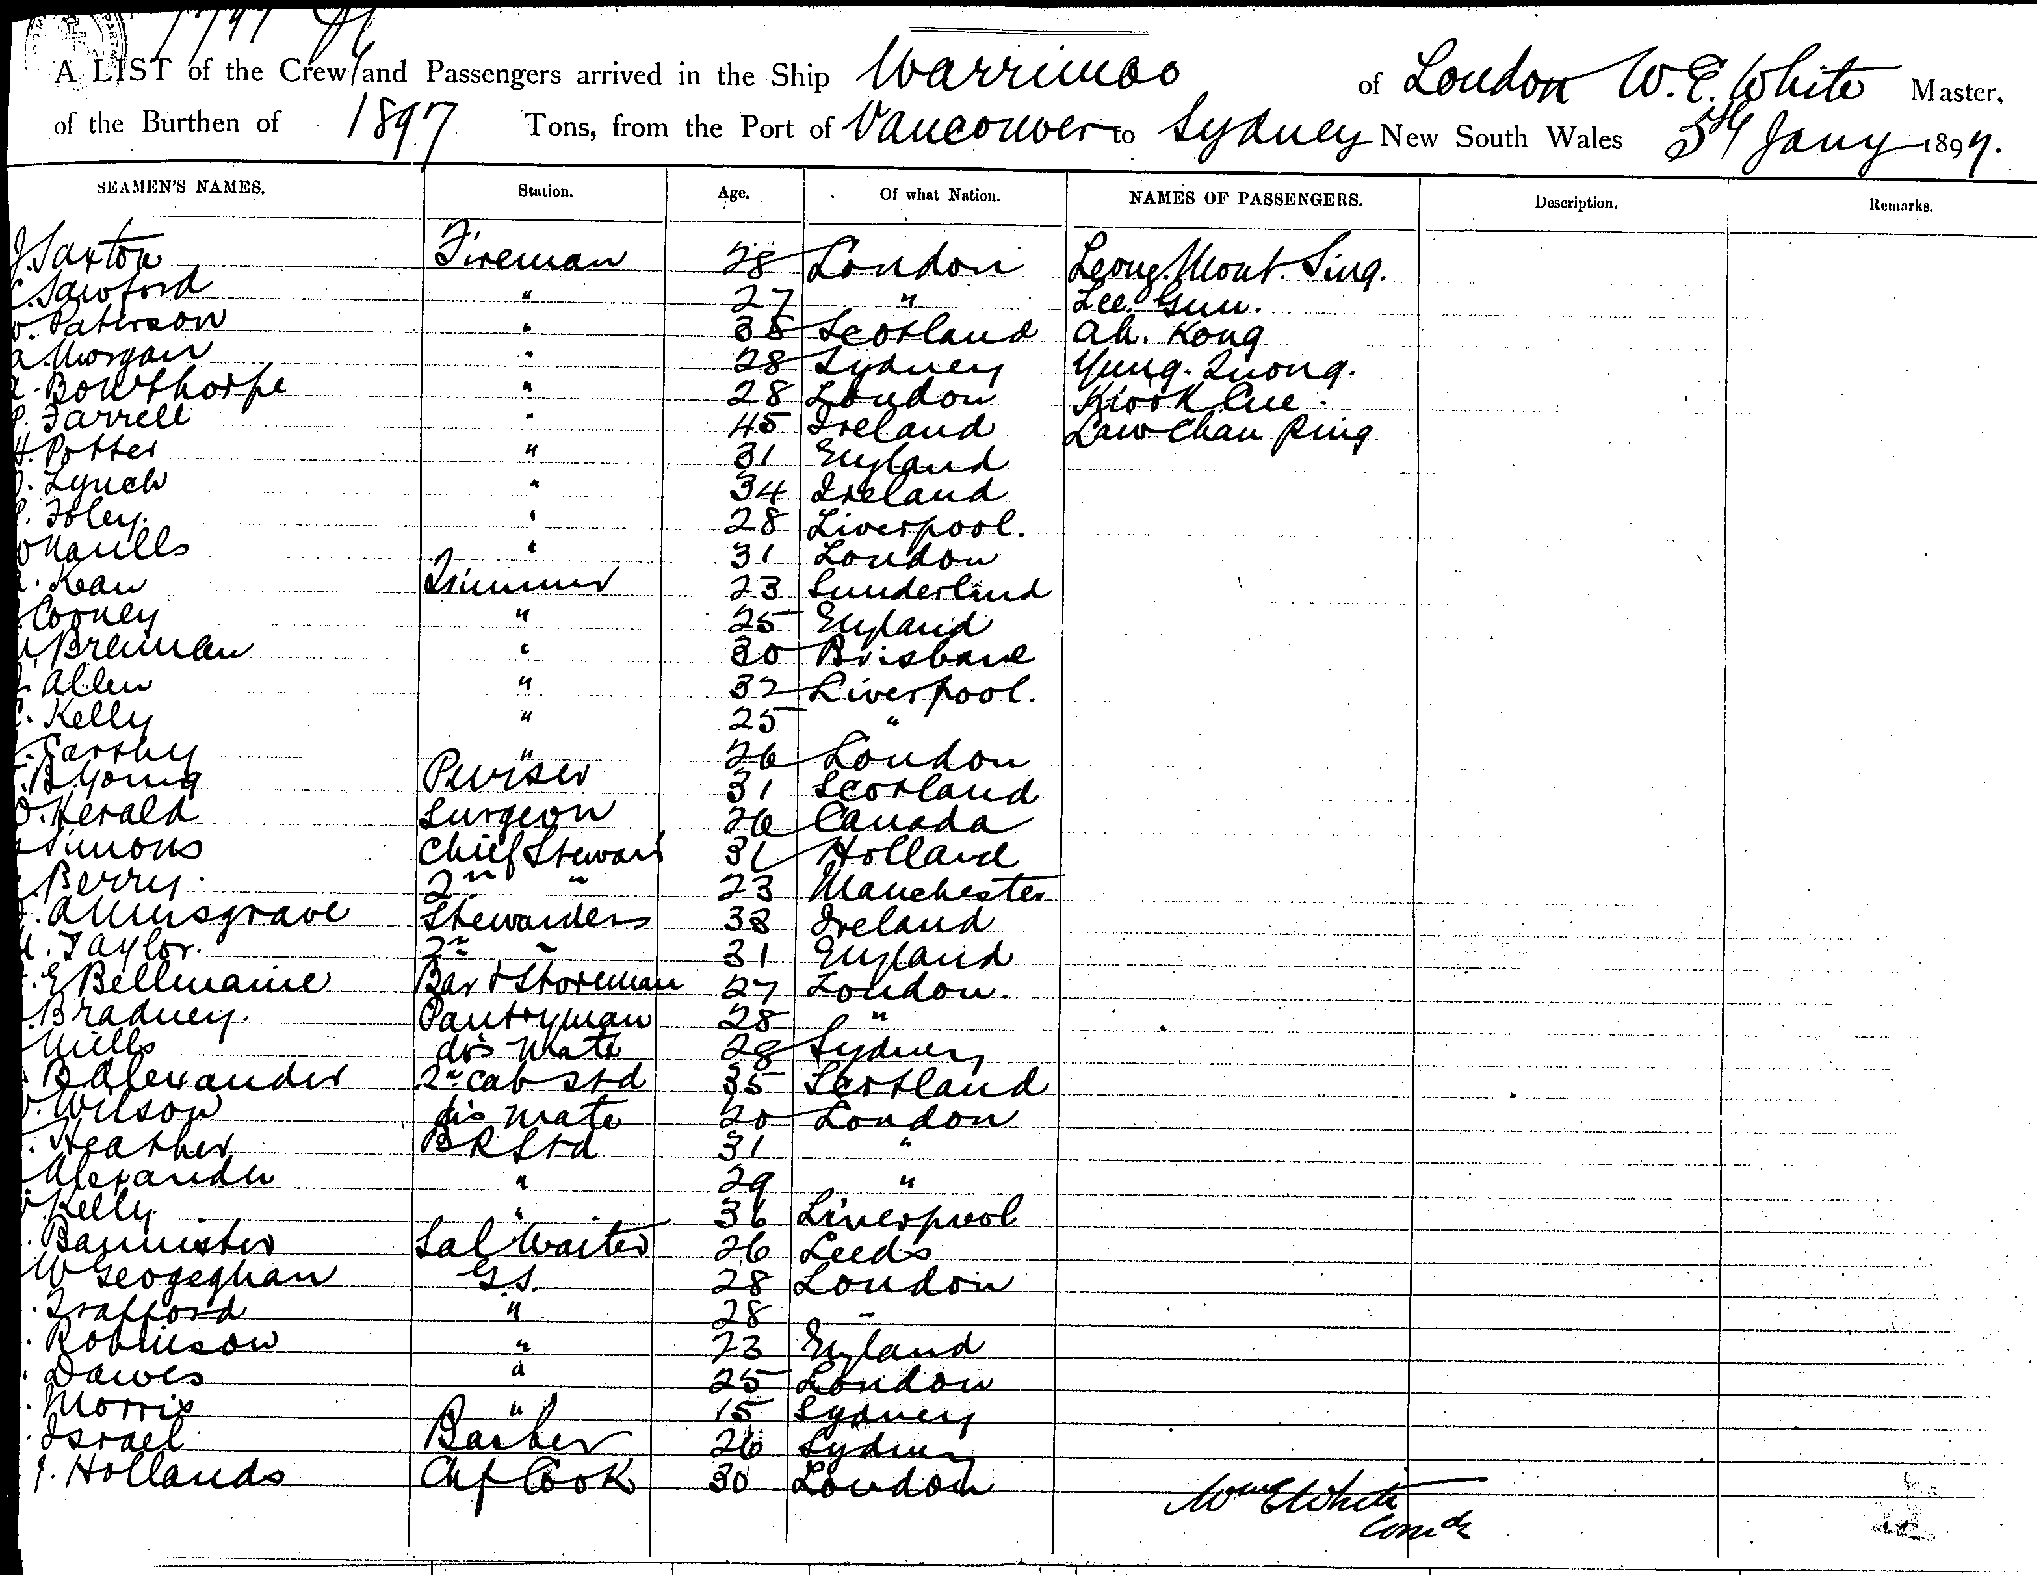 A LIST of the Crew and Passengers arrived in the Ship Warrimoo of London W. E. White Master,
of the Burthen of 1897 Tons, from the Port of Vancouver to Sydney New South Wales 5th Jany 1897.
SEAMEN'S NAMES. Station. Age. Of what Nation. NAMES OF PASSENGERS. Description. Remarks.
J. Saxton Fireman 28 London Leong Mout. Sing.
Sawford " 27 " Lee Gun.
Paterson " 35 Scotland Ah. Kong
Morgan " 28 Sydney Yung. Quong.
Bowthorpe " 28 London Kwok Cue.
Farrell " 45 Ireland Law Chan Ping
H. Potter " 31 England
Lynch " 34 Ireland
Foley. " 28 Liverpool.
Naulls " 31 London
Kean Trimmer 23 Sunderland
Cooney " 25 England
Brennan " 30 Brisbane
Allen " 32 Liverpool.
Kelly " 25 "
" 26 London
B Young Purser 31 Scotland
Herald Surgeon 26 Canada
Simons Chief Steward 31 Holland
Berry. 2nd " 23 Manchester
A Musgrave Stewardess 38 Ireland
Taylor. 2nd " 31 England
E Bellmaine Bar & Storeman 27 London.
Bradney. Pantryman 28 "
Mills do's mate 28 Sydney
B Alexander 2nd cab std 35 Scotland
Wilson do's mate 20 London
Heather B R Std 31 "
Alexander " 29 "
Kelly " 36 Liverpool
Bannister Sal Waiter 26 Leeds
W Geogeghan G.S. 28 London
Trafford " 28 "
Robinson " 23 England
Dawes " 25 London
Morris " 15 Sydney
Israel Barber 26 Sydney
J. Hollands Chf Cook 30 London
Wm E White
Comdr